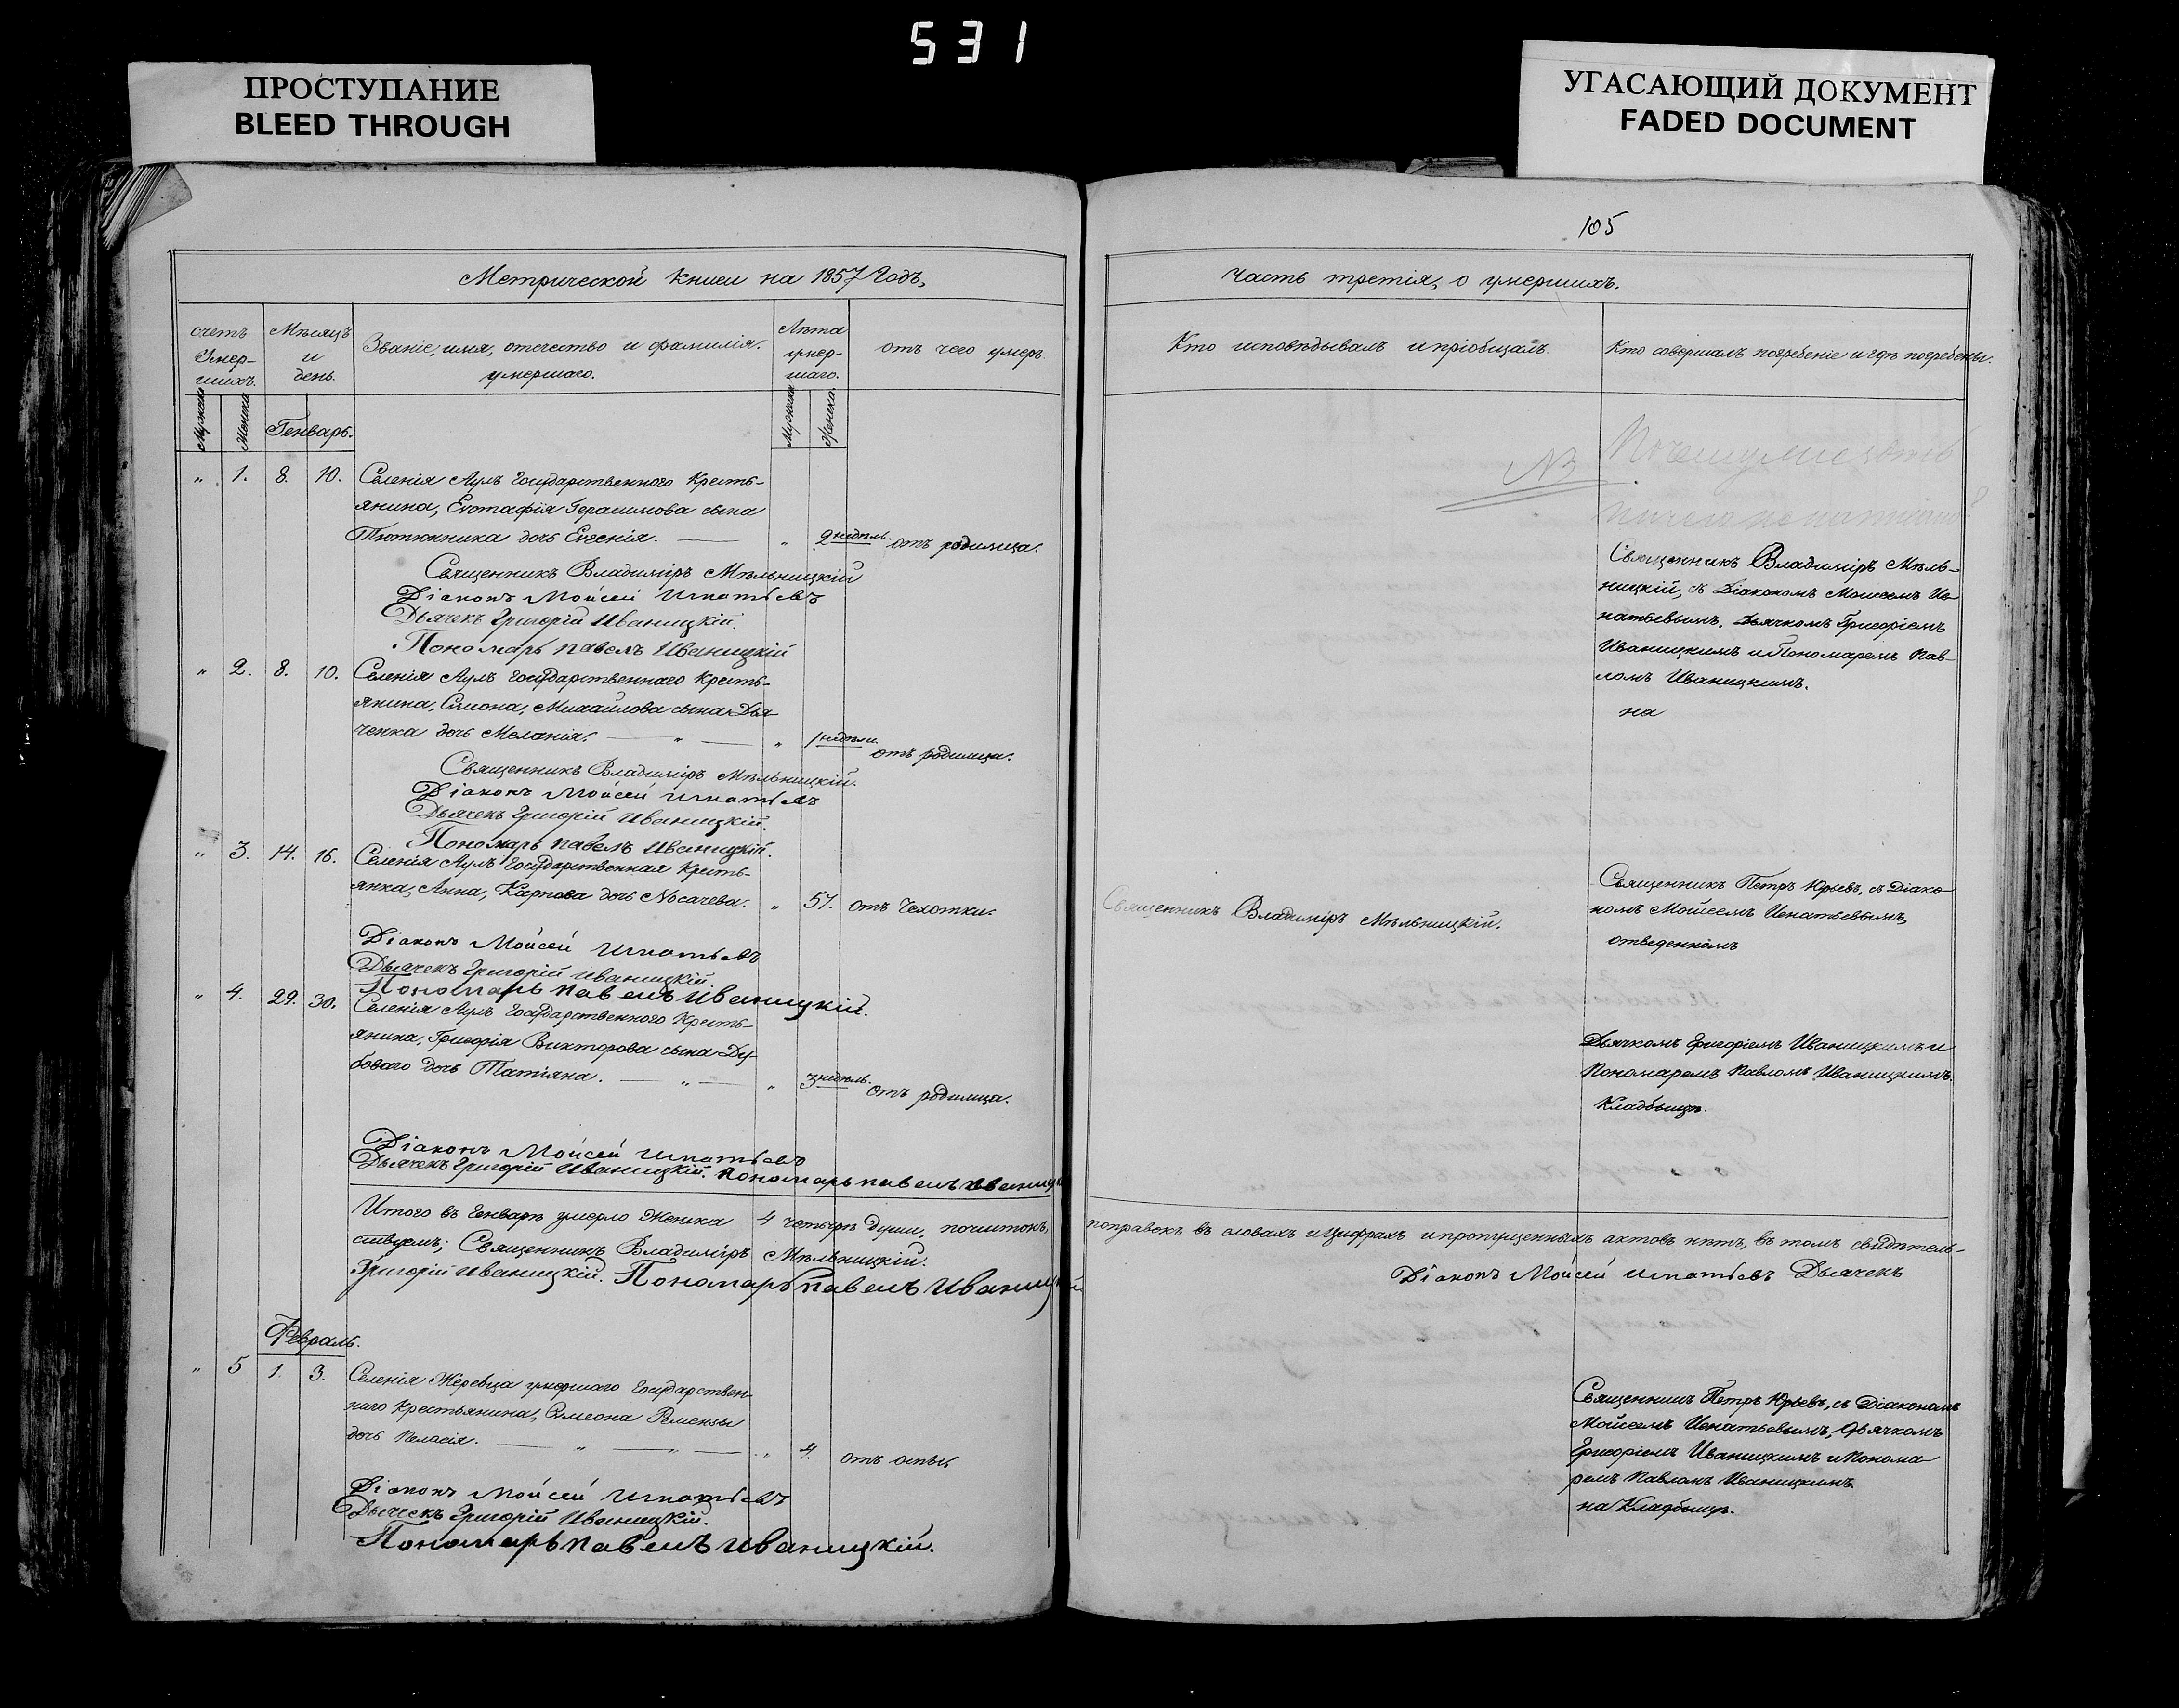 531
ПРОСТУПАНИЕ
BLEED THROUGH
УГАСАЮЩИЙ ДОКУМЕНТ
FADED DOCUMENT
Метрической книги на 1857 Годъ,
счетъ
Умер-
шихъ.
Мѣсяцъ
и
день.
Званіе, имя, отчество и фамилія.
умершаго.
Лѣта
умер-
шаго.
отъ чего умеръ.
Мужеска
Женска
Генварь.
Мужеска
Женска.
" 1. 8. 10. Селенія Аулъ Государственного Кресть-
янина, Евстафія Герасимова сына
Тютюнника дочь Евгенія. — " 2 недѣль. отъ родимца.
Священникъ Владиміръ Мѣльницкій
Діаконъ Мойсей Игнатьевъ
Дьячекъ Григорій Иваницкій.
Пономарь Павелъ Иваницкій
" 2. 8. 10. Селенія Аулъ Государственнаго Кресть-
янина, Симона, Михайлова сына Дья-
ченка дочь Меланія. — " — " 1 недѣли. отъ родимца.
Священникъ Владиміръ Мѣльницкій.
Діаконъ Мойсей Игнатьевъ
Дьячекъ Григорій Иваницкій.
Пономарь Павелъ Иваницкій.
" 3. 14. 16. Селенія Аулъ Государственная Кресть-
янка, Анна, Карпова дочь Носачева. " 57. отъ Чехотки.
Діаконъ Мойсей Игнатьевъ
Дьячекъ Григорій Иваницкій.
Пономарь Павелъ Иваницкій.
" 4. 29. 30. Селенія Аулъ Государственного Кресть-
янина, Григорія Викторова сына Ду-
боваго дочь Татіяна. — " — " 3 недѣль. отъ родимца.
Діаконъ Мойсей Игнатьевъ
Дьячекъ Григорій Иваницкій. Пономарь Павелъ Иваницк
Итого въ Генварѣ умерло Женска 4 четырѣ души, почистокъ,
ствуемъ; Священникъ Владиміръ Мѣльницкій.
Григорій Иваницкій. Пономарь Павелъ Иваницкій
Февраль.
" 5 1. 3. Селенія Жеревца умершаго Государствен-
наго Крестьянина, Симеона Ремензы
дочь Пелагія. — " — " — " 4. отъ оспы.
Діаконъ Мойсей Игнатьевъ
Дьячекъ Григорій Иваницкій.
Пономарь Павелъ Иваницкій.
105
Часть третія, о умершихъ.
Кто исповѣдывалъ и пріобщалъ.
Кто совершалъ погребеніе и гдѣ погребены.
NB
ничего не написано?
Священникъ Владиміръ Мѣль-
ницкій, съ Діакономъ Моисеемъ Иг-
натьевымъ, Дьячкомъ Григоріемъ
Иваницкимъ и Пономаремъ Пав-
ломъ Иваницкимъ.
на
Священникъ Владиміръ Мѣльницкій.
Священникъ Петръ Юрьевъ, съ Діако-
номъ Мойсеемъ Игнатьевымъ,
отведенномъ
Дьячкомъ Григоріемъ Иваницкимъ и
Пономаремъ Павломъ Иваницкимъ.
Кладбищѣ.
поправокъ въ словахъ и Цифрахъ и пропущенныхъ актовъ нѣтъ, въ томъ свидѣтель-
Діаконъ Мойсей Игнатьевъ Дьячекъ
Священникъ Петръ Юрьевъ, съ Діакономъ
Мойсеемъ Игнатьевымъ, Дьячкомъ
Григоріемъ Иваницкимъ и Понома-
ремъ Павломъ Иваницкимъ
на Кладбищѣ.